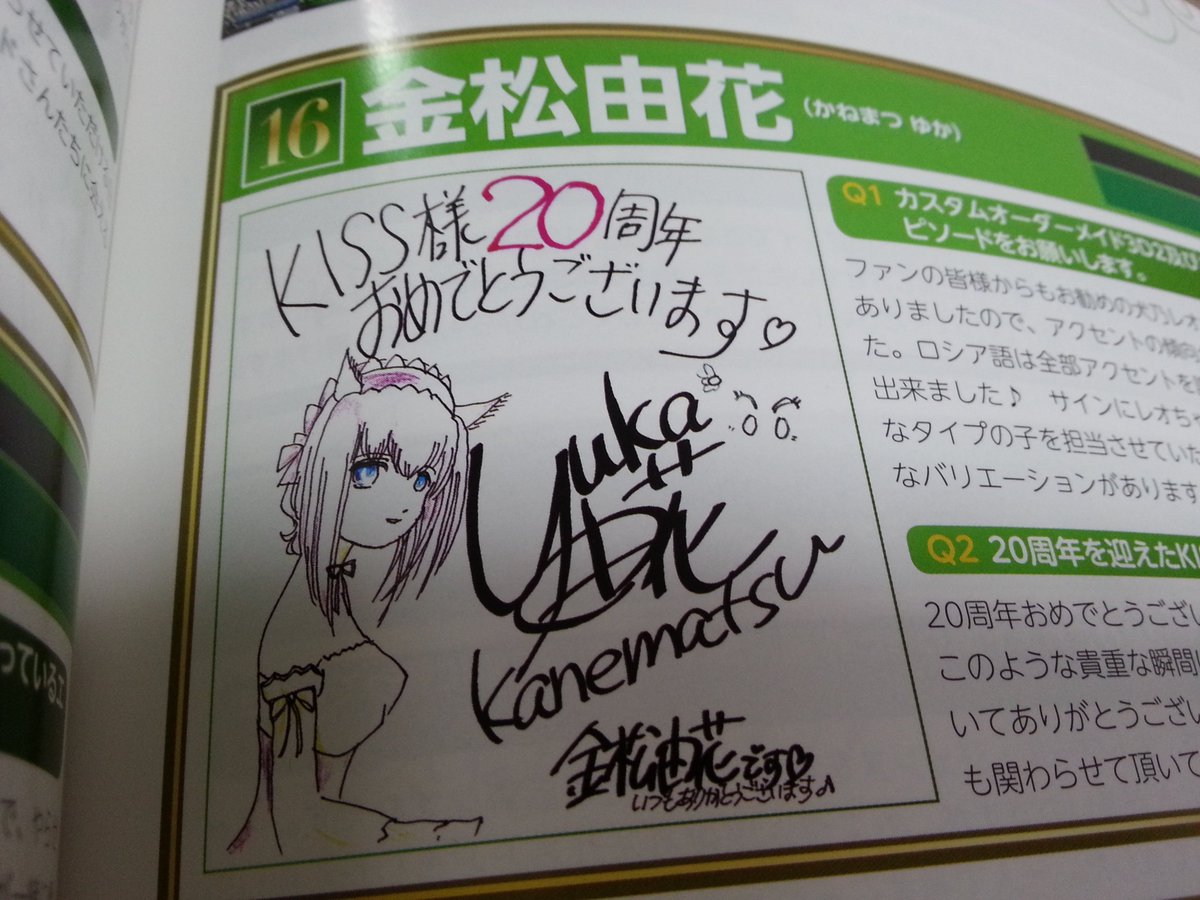 せていただける
ドさんたちに会え
っているエ
16
金松由花
(かねまつ ゆか)
KISS様20周年
おめでとうございます♡
Yuka
由花
Kanematsu
金松由花です♡
いつもありがとうございます♪
Q1 カスタムオーダーメイド3D2及び
ピソードをお願いします。
ファンの皆様からもお勧めの犬
ありましたので、アクセントの傾向
た。ロシア語は全部アクセントを
出来ました♪ サインにレオち
なタイプの子を担当させていた
なバリエーションがあります
Q2 20周年を迎えたKI
20周年おめでとうござい
このような貴重な瞬間
いてありがとうござい
も関わらせて頂いて